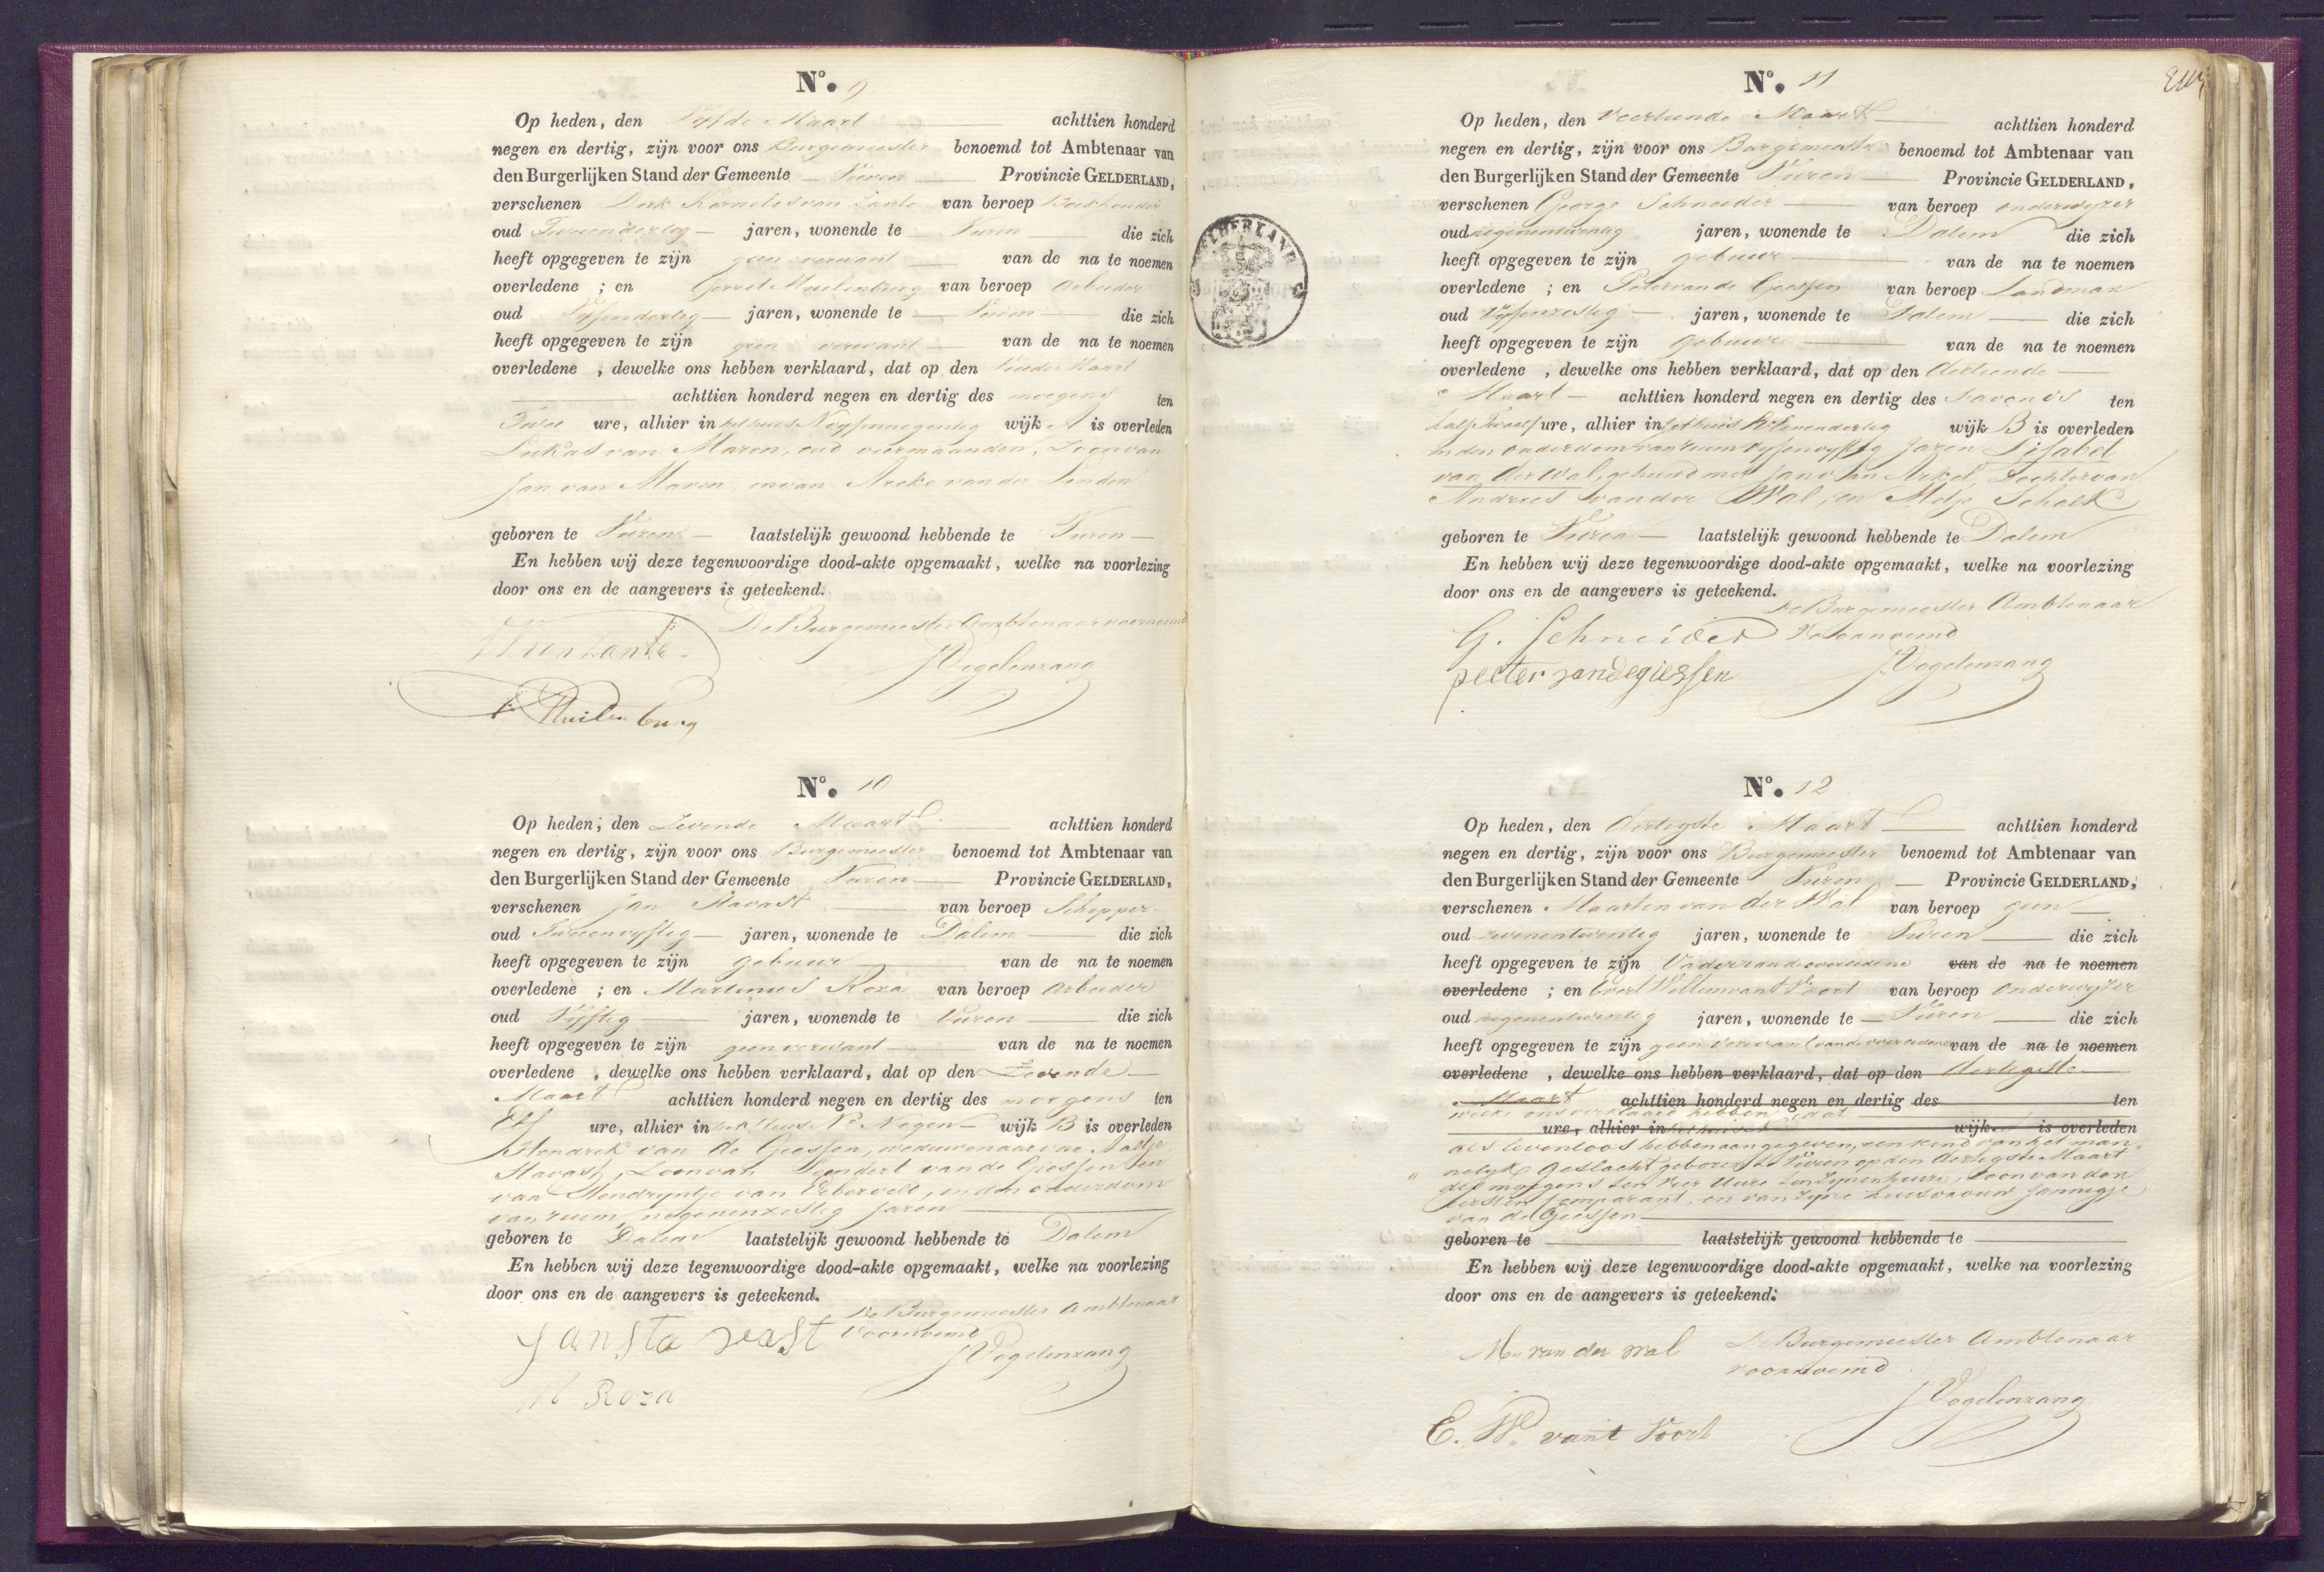 N.º 9
Op heden, den Vijfde Maart achttien honderd
negen en dertig, zijn voor ons Burgemeester benoemd tot Ambtenaar van
den Burgerlijken Stand der Gemeente Vuren Provincie GELDERLAND,
verschenen Dirk Kornelis van Zante van beroep Boekhouder
oud Tweendertig jaren, wonende te Vuren die zich
heeft opgegeven te zijn geen verwant van de na te noemen
overledene ; en Gerret Muilenburg van beroep Arbeider
oud Vyfendertig jaren, wonende te Vuren die zich
heeft opgegeven te zijn geen verwant van de na te noemen
overledene , dewelke ons hebben verklaard, dat op den Maart
achttien honderd negen en dertig des morgens ten
Twee ure, alhier in het huis N vyfennegentig wijk A is overleden
Lukas van Maren, oud viermaanden, Zoon van
Jan van Maren en van Areke van der Linden
geboren te Vuren laatstelijk gewoond hebbende te Vuren
En hebben wij deze tegenwoordige dood-akte opgemaakt, welke na voorlezing
door ons en de aangevers is geteekend.
De Burgemeester Ambtenaar voornoemd
Vogelenzang
Muilenburg
N.º 10
Op heden, den Zevende Maart achttien honderd
negen en dertig, zijn voor ons Burgemeester benoemd tot Ambtenaar van
den Burgerlijken Stand der Gemeente Vuren Provincie GELDERLAND,
verschenen Jan Stavast van beroep Schipper
oud Tweenvyftig jaren, wonende te Dalem die zich
heeft opgegeven te zijn gebuur van de na te noemen
overledene ; en Martinus Roza van beroep Arbeider
oud Vyftig jaren, wonende te Vuren die zich
heeft opgegeven te zijn geen verwant van de na te noemen
overledene , dewelke ons hebben verklaard, dat op den Zevende
Maart achttien honderd negen en dertig des morgens ten
Elf ure, alhier in het Huis Nº Negen wijk B is overleden
Hendrik van de Giessen, weduwenaar van Aaltje
Stavast, Zoon van Leendert van de Giessen en
van Hendryntje van, in den ouderdom
van ruim negenenzestig jaren
geboren te Dalem laatstelijk gewoond hebbende te Dalem
En hebben wij deze tegenwoordige dood-akte opgemaakt, welke na voorlezing
door ons en de aangevers is geteekend.
De Burgemeester Ambtenaar
voornoemd
Jan Sta vast
Vogelenzang
M Roza
N.º 11
Op heden, den Veertiende Maart achttien honderd
negen en dertig, zijn voor ons Burgemeester benoemd tot Ambtenaar van
den Burgerlijken Stand der Gemeente Vuren Provincie GELDERLAND,
verschenen George Schneider van beroep onderwyzer
oud negenentwintig jaren, wonende te Dalem die zich
heeft opgegeven te zijn gebuur van de na te noemen
overledene ; en Peter van de Giessen van beroep Landman
oud vyfenzestig jaren, wonende te Dalem die zich
heeft opgegeven te zijn gebuur van de na te noemen
overledene , dewelke ons hebben verklaard, dat op den dertiende
Maart achttien honderd negen en dertig des savonds ten
half Twaalf ure, alhier in het huis Nº Zevenendertig wijk B is overleden
in den ouderdom van ruim vyfenvyftig jaren Lisabet
van der Wal, gehuwd met Jan van Arkel, Dochter van
Andries van der Wal, en Metje Schalk
geboren te Vuren laatstelijk gewoond hebbende te Dalem
En hebben wij deze tegenwoordige dood-akte opgemaakt, welke na voorlezing
door ons en de aangevers is geteekend.
De Burgemeester Ambtenaar
G. Schneider voornoemd
peeter vandegiessen Vogelenzang
N.º 12
Op heden, den dertigste Maart achttien honderd
negen en dertig, zijn voor ons Burgemeester benoemd tot Ambtenaar van
den Burgerlijken Stand der Gemeente Vuren Provincie GELDERLAND,
verschenen Maarten van der Wal van beroep geen
oud zevenentwintig jaren, wonende te Vuren die zich
heeft opgegeven te zijn Vader van de overledene van de na te noemen
overledene ; en Evert Willem van't Voort van beroep onderwyzer
oud negenentwintig jaren, wonende te Vuren die zich
heeft opgegeven te zijn geen verwant van de overledene van de na te noemen
overledene , dewelke ons hebben verklaard, dat op den dertigste
Maart achttien honderd negen en dertig des ten
welke ons verklaard hebben dat
ure, alhier in het huis wijk is overleden
als levenloos hebben aangegeven, een kind van het man
nelyk geslacht geboren te Vuren op den dertigste Maart
des morgens ten vier Ure ten zynenhuize, zoon van den
eersten Comparant, en van zyne huisvrouw Jannigje
van de Giessen
geboren te laatstelijk gewoond hebbende te
En hebben wij deze tegenwoordige dood-akte opgemaakt, welke na voorlezing
door ons en de aangevers is geteekend.
M. van der Wal De Burgemeester Ambtenaar
voornoemd
Vogelenzang
E. W. van't Voort
GELDERLAND